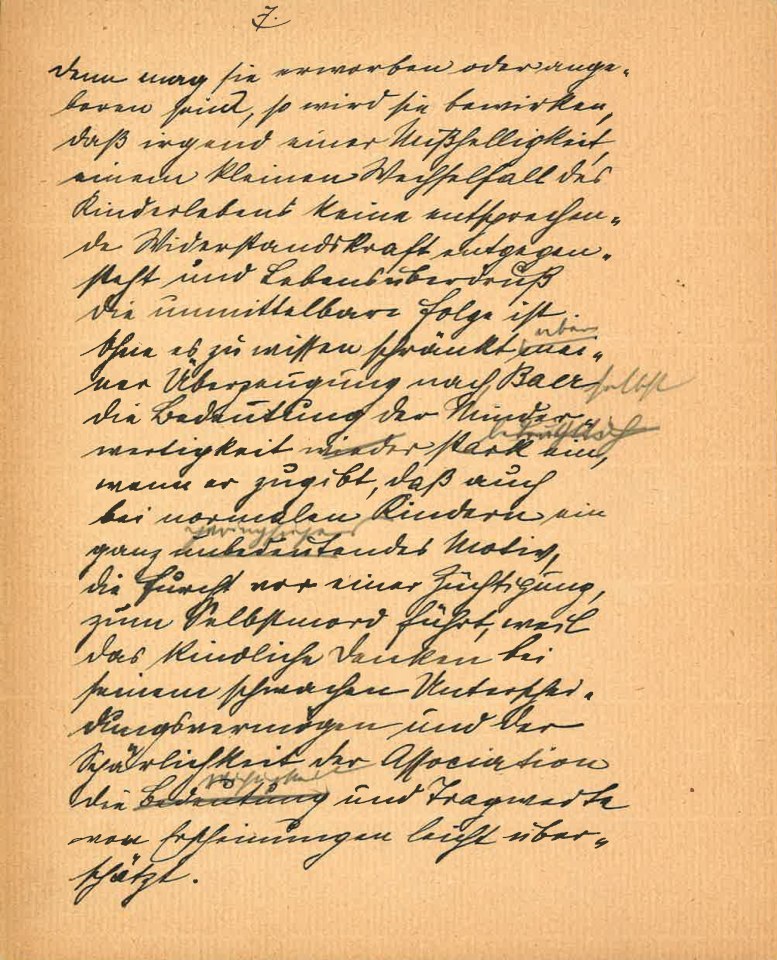 7.
denn mag sie erworben oder ange-
boren sein, so wird sie bewirken,
daß irgend einer Mißhelligkeit,
einem kleinen Wechselfall des
Kinderlebens keine entsprechen-
de Widerstandskraft entgegen-
steht und Lebensüberdruß
die unmittelbare Folge ist.
aber
Ohne es zu wissen schränkt mei-
ner Überzeugung nach Baer selbst
die Bedeutung der Minder-
wertigkeit wieder stark ein,
wenn er zugibt, daß auch
bei normalen Kindern ein
geringfügiges
ganz unbedeutendes Motiv,
die Furcht vor einer Züchtigung,
zum Selbstmord führt, weil
das kindliche Denken bei
seinem schwachen Unterschei-
dungsvermögen und der
Spärlichkeit der Association
die Bedeutung und Tragweite
von Erscheinungen leicht über-
schätzt.